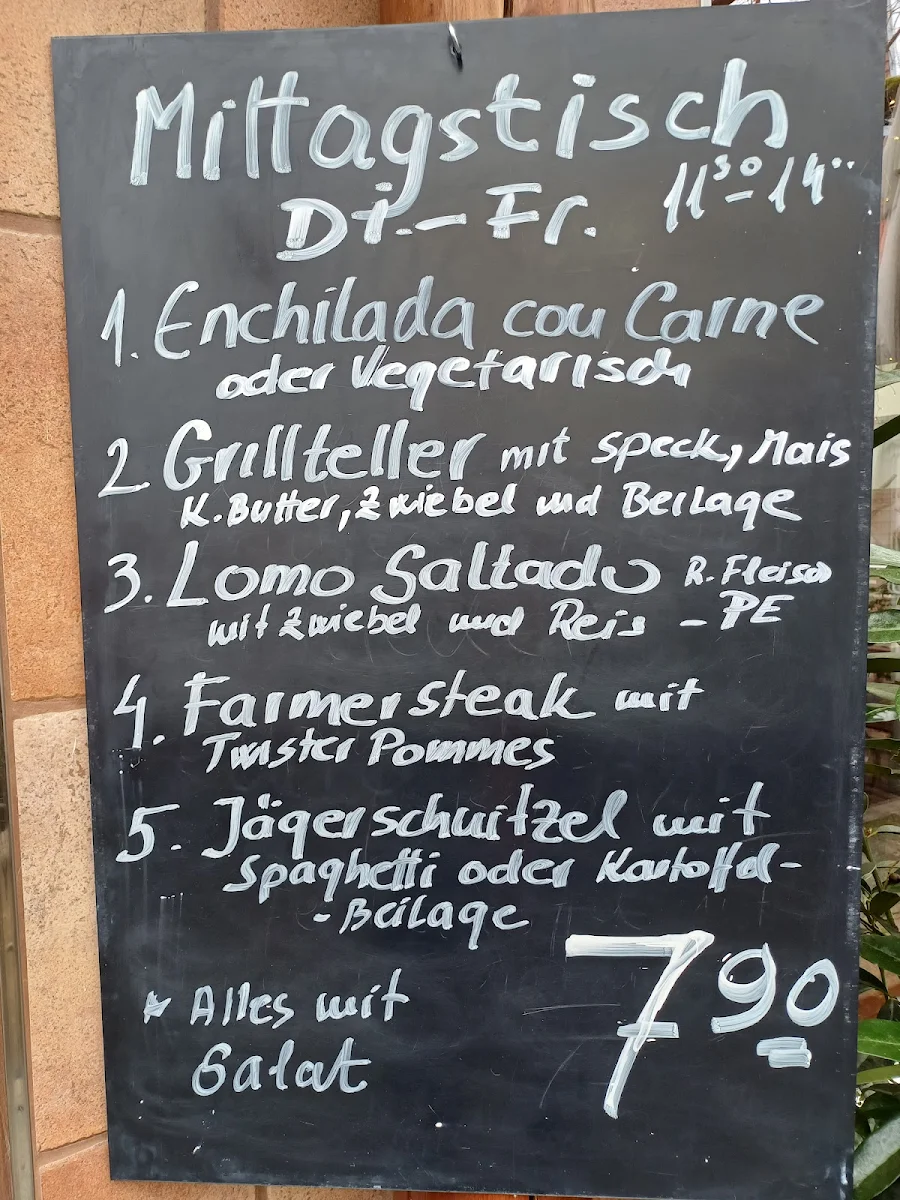 Mittagstisch
Di.-Fr. 11³⁰-14⁰⁰
1. Enchilada con Carne
oder Vegetarisch
2 Grillteller mit Speck, Mais
K.Butter, Zwiebel und Beilage
3. Lomo Saltado R. Fleisch
mit Zwiebel und Reis - PE
4. Farmersteak mit
Twister Pommes
5. Jägerschnitzel mit
Spaghetti oder Kartoffel-
-Beilage
* Alles mit
Salat
7 90